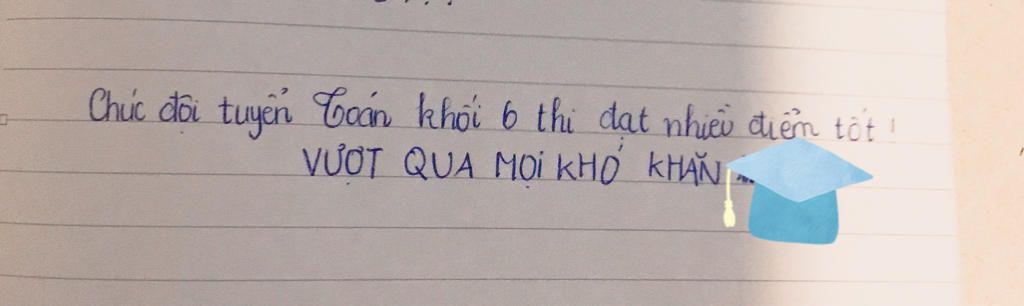 Chúc đội tuyển Toán khối 6 thi đạt nhiều điểm tốt !
VƯỢT QUA MỌI KHÓ KHĂN